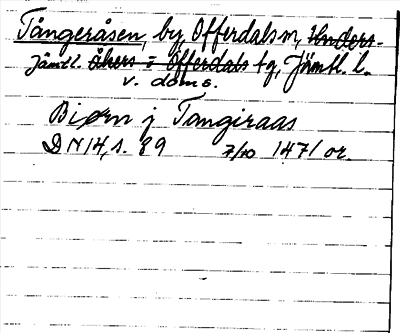 Tångeråsen, by, Offerdals sn, Unders-
Jämtl. Åkers o Offerdals tg, Jämtl. l.
v. doms.
Biørn j Tangiraas
DN 14, s. 89 7/10 1471 or.